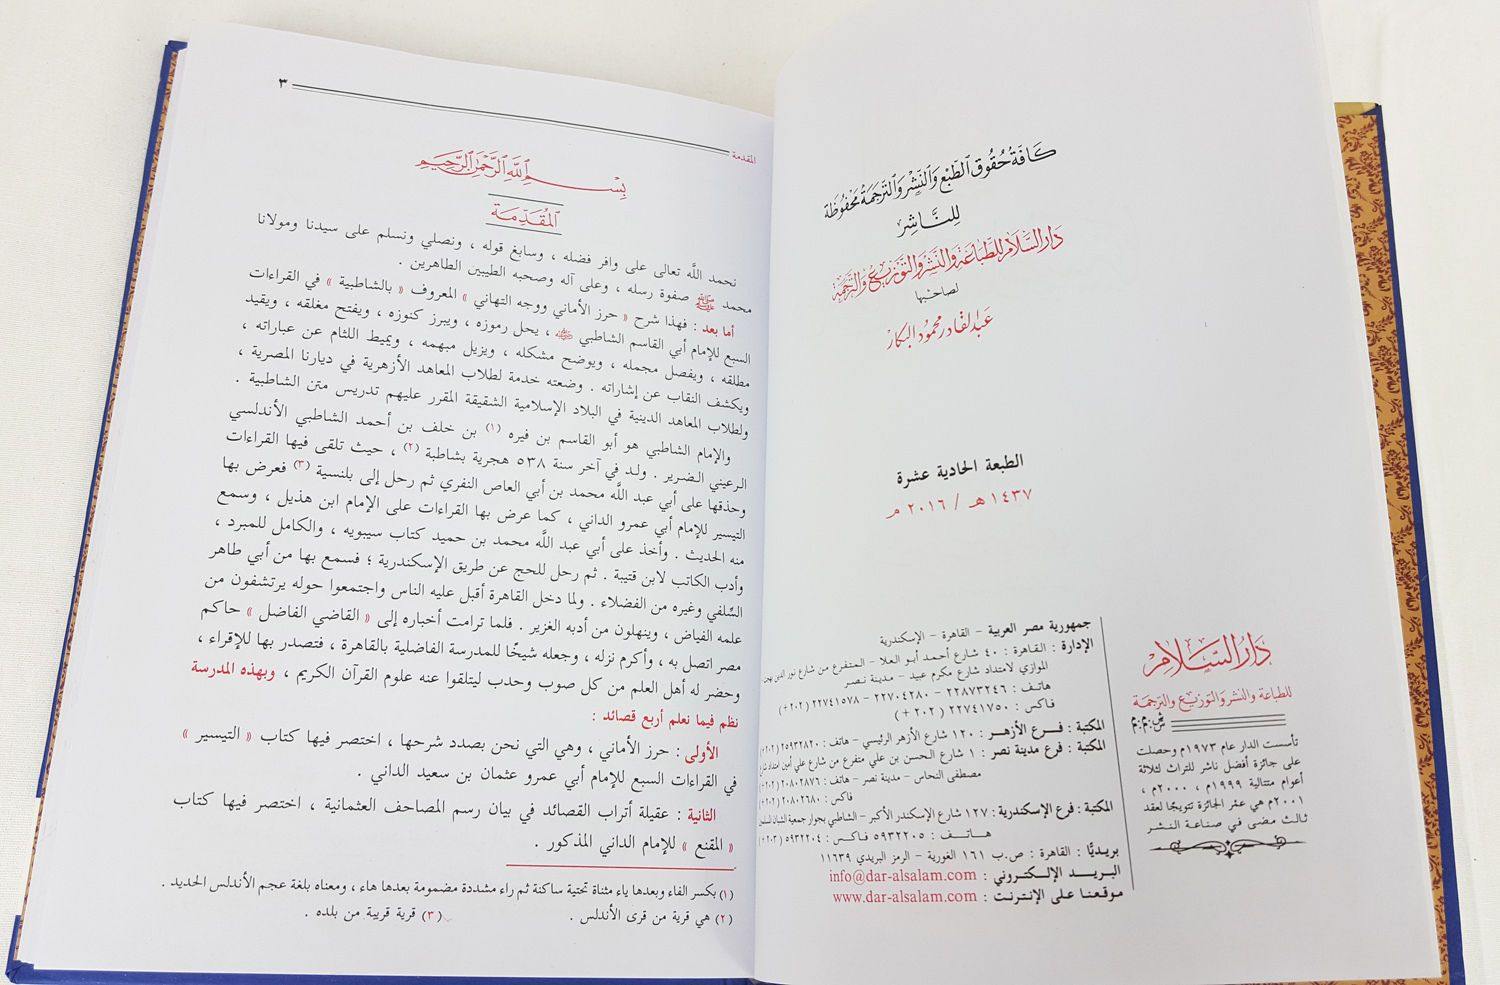 كَافَةُ حُقُوقِ الطَّبْعِ وَالنَّشْرِ وَالتَّرْجَمَةِ مَحْفُوظَة
لِلنَّاشِرِ
دَارُ السَّلَامِ لِلطِّبَاعَةِ وَالنَّشْرِ وَالتَّوْزِيعِ وَالتَّرْجَمَة
لصاحبها
عبدالقادر محمود البكار
الطبعة الحادية عشرة
١٤٣٧ هـ / ٢٠١٦ م
دَارُ السَّلَام
للطباعة والنشر والتوزيع والترجمة
ش.م.م
تأسست الدار عام ١٩٧٣م وحصلت
على جائزة أفضل ناشر للتراث لثلاثة
أعوام متتالية ١٩٩٩م ، ٢٠٠٠م ،
٢٠٠١م هي عشر الجائزة تتويجًا لعقد
ثالث مضى في صناعة النشر
جمهورية مصر العربية – القاهرة – الإسكندرية
الإدارة : القاهرة : ٤٠ شارع أحمد أبو العلا – المتفرع من شارع نور الدين بهجت
الموازي لامتداد شارع مكرم عبيد – مدينة نصر
هاتف : ٢٢٨٧٣٢٤٦ – ٢٢٧٠٤٢٨٠ – ٢٢٧٤١٥٧٨ (٢٠٢ +)
فاكس : ٢٢٧٤١٧٥٠ (٢٠٢ +)
المكتبة : فرع الأزهر : ١٢٠ شارع الأزهر الرئيسي – هاتف : ٢٥٩٣٢٨٢٠ (٢٠٢ +)
المكتبة : فرع مدينة نصر : ١ شارع الحسن بن علي متفرع من شارع علي أمين امتداد شارع
مصطفى النحاس – مدينة نصر – هاتف : ٢٠٨٠٢٨٧٦ (٢٠٢ +)
فاكس : ٢٠٨٠٢٦٨٠ (٢٠٢ +)
المكتبة : فرع الإسكندرية : ١٢٧ شارع الإسكندر الأكبر – الشاطبي بجوار جمعية الشبان المسلمين
هاتف : ٥٩٣٢٢٠٥ فاكس : ٥٩٣٢٢٠٤ (٢٠٣ +)
بريديًّا : القاهرة : ص.ب ١٦١ الغورية – الرمز البريدي ١١٦٣٩
البريد الإلكتروني : info@dar-alsalam.com
موقعنا على الإنترنت : www.dar-alsalam.com
المقدمة
٣
بِسْمِ اللَّهِ الرَّحْمَٰنِ الرَّحِيمِ
المُقَدِّمَة
نحمد اللَّه تعالى على وافر فضله ، وسابغ قوله ، ونصلي ونسلم على سيدنا ومولانا
محمد ﷺ صفوة رسله ، وعلى آله وصحبه الطيبين الطاهرين .
أما بعد : فهذا شرح « حرز الأماني ووجه التهاني » المعروف « بالشاطبية » في القراءات
السبع للإمام أبي القاسم الشاطبي ، يحل رموزه ، ويبرز كنوزه ، ويفتح مغلقه ، ويقيد
مطلقه ، ويفصل مجمله ، ويوضح مشكله ، ويزيل مبهمه ، ويميط اللثام عن عباراته ،
ويكشف النقاب عن إشاراته . وضعته خدمة لطلاب المعاهد الأزهرية في ديارنا المصرية ،
ولطلاب المعاهد الدينية في البلاد الإسلامية الشقيقة المقرر عليهم تدريس متن الشاطبية .
والإمام الشاطبي هو أبو القاسم بن فيره (١) بن خلف بن أحمد الشاطبي الأندلسي
الرعيني الضرير . ولد في آخر سنة ٥٣٨ هجرية بشاطبة (٢) ، حيث تلقى فيها القراءات
وحذقها على أبي عبد اللَّه محمد بن أبي العاص النفري ثم رحل إلى بلنسية (٣) فعرض بها
التيسير للإمام أبي عمرو الداني ، كما عرض بها القراءات على الإمام ابن هذيل ، وسمع
منه الحديث . وأخذ على أبي عبد اللَّه محمد بن حميد كتاب سيبويه ، والكامل للمبرد ،
وأدب الكاتب لابن قتيبة . ثم رحل للحج عن طريق الإسكندرية ؛ فسمع بها من أبي طاهر
السِّلفي وغيره من الفضلاء . ولما دخل القاهرة أقبل عليه الناس واجتمعوا حوله يرتشفون من
علمه الفياض ، وينهلون من أدبه الغزير . فلما ترامت أخباره إلى « القاضي الفاضل » حاكم
مصر اتصل به ، وأكرم نزله ، وجعله شيخًا للمدرسة الفاضلية بالقاهرة ، فتصدر بها للإقراء ،
وحضر له أهل العلم من كل صوب وحدب ليتلقوا عنه علوم القرآن الكريم ، وبهذه المدرسة
نظم فيما نعلم أربع قصائد :
الأولى : حرز الأماني ، وهي التي نحن بصدد شرحها ، اختصر فيها كتاب « التيسير »
في القراءات السبع للإمام أبي عمرو عثمان بن سعيد الداني .
الثانية : عقيلة أتراب القصائد في بيان رسم المصاحف العثمانية ، اختصر فيها كتاب
« المقنع » للإمام الداني المذكور .
(١) بكسر الفاء وبعدها ياء مثناة تحتية ساكنة ثم راء مشددة مضمومة بعدها هاء ، ومعناه بلغة عجم الأندلس الحديد .
(٢) هي قرية من قرى الأندلس . (٣) قرية قريبة من بلده .